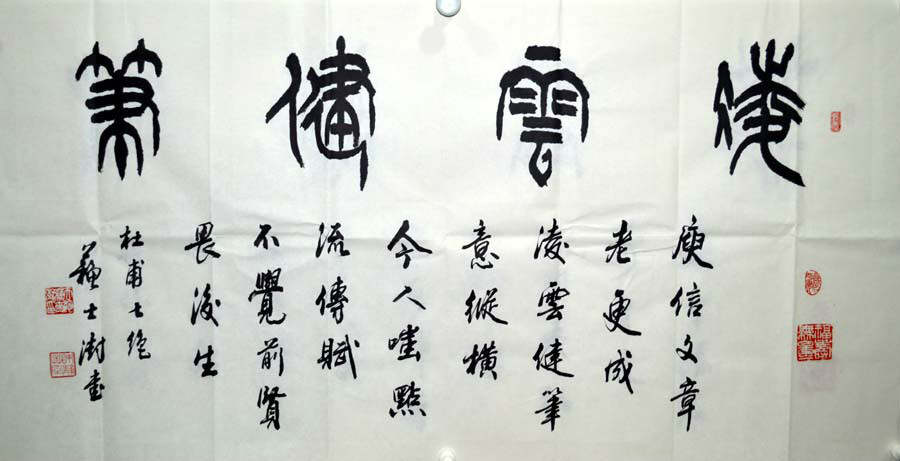 凌雲健筆
庾信文章
老更成
凌雲健筆
意縱橫
今人嗤點
流傳賦
不覺前賢
畏後生
杜甫七絕
蘇士澍書